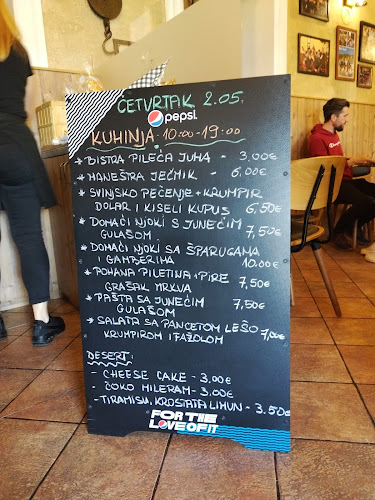 ČETVRTAK 2.05.
pepsi
KUHINJA - 10:00 - 19:00
* BISTRA PILEĆA JUHA - 3,00€
* MANEŠTRA JEČMIK - 6,00€
* SVINJSKO PEČENJE + KRUMPIR
DOLAR I KISELI KUPUS 6,50€
* DOMAĆI NJOKI S JUNEĆIM
GULAŠOM 7,50€
* DOMAĆI NJOKI SA ŠPARUGAMA
I GAMBERIMA 10,00€
* POHANA PILETINA, PIRE
GRAŠAK MRKVA 7,50€
* PAŠTA SA JUNEĆIM 7,50€
GULAŠOM
* SALATA SA PANCETOM LEŠO 7,00€
KRUMPIROM I FAŽOLOM
DESERT:
- CHEESE CAKE - 3,00€
- ČOKO MILERAM - 3,00€
- TIRAMISU, KROSTATA LIMUN - 3.50€
FOR THE
LOVE OF IT